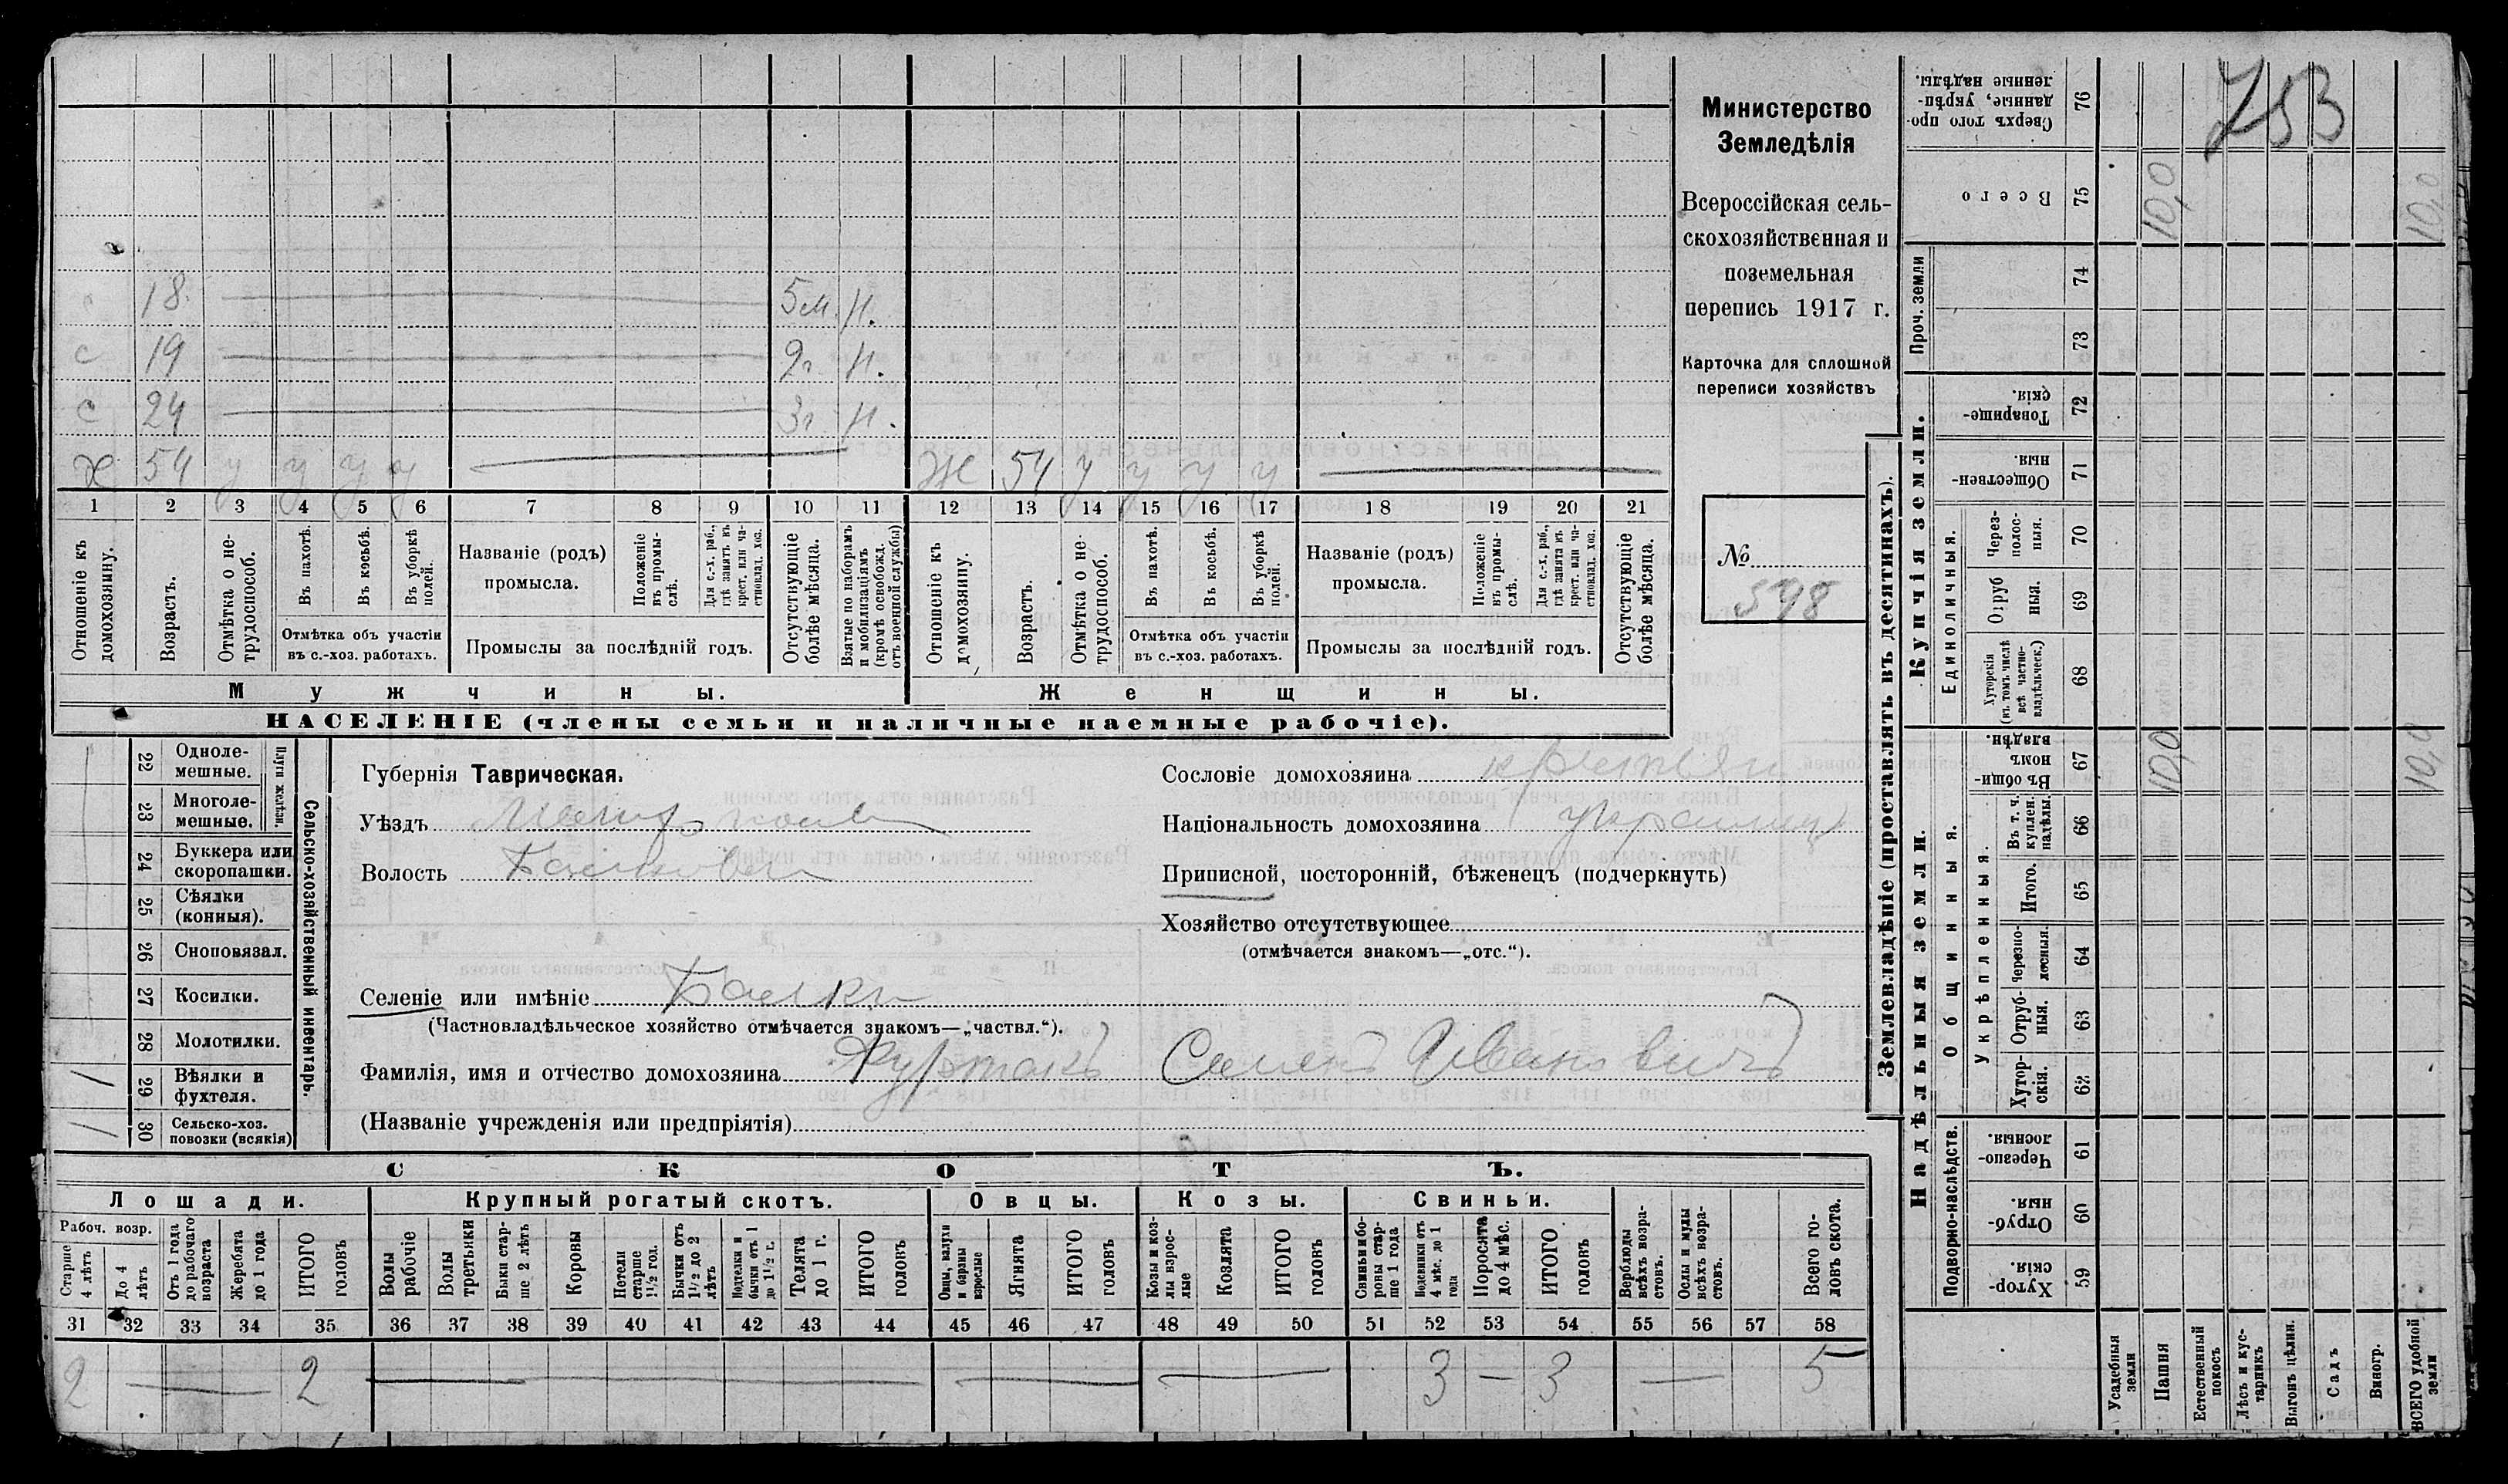 18. 5 м. Н.
с 19 2 г. Н.
с 24 3 г. Н.
Х 54 у у у у Ж 54 у у у у
1 2 3 4 5 6 7 8 9 10 11 12 13 14 15 16 17 18 19 20 21
Отношеніе къ домохозяину.
Возрастъ.
Отмѣтка о не-
трудоспособ.
Въ пахотѣ.
Въ косьбѣ.
Въ уборкѣ
полей.
Отмѣтка объ участіи
въ с.-хоз. работахъ.
Названіе (родъ)
промысла.
Положеніе
въ промы-
слѣ.
Для с.-х. раб.,
гдѣ занятъ въ
крест. или ча-
стновлад. хоз.
Промыслы за послѣдній годъ.
Отсутствующіе
болѣе мѣсяца.
Взятые по наборамъ
и мобилизаціямъ
(кромѣ освобожд.
отъ военной службы)
Отношеніе къ
домохозяину.
Возрастъ.
Отмѣтка о не-
трудоспособ.
Въ пахотѣ.
Въ косьбѣ.
Въ уборкѣ
полей.
Отмѣтка объ участіи
въ с.-хоз. работахъ.
Названіе (родъ)
промысла.
Положеніе
въ промы-
слѣ.
Для с.-х. раб.,
гдѣ занята въ
крест. или ча-
стновлад. хоз.
Промыслы за послѣдній годъ.
Отсутствующіе
болѣе мѣсяца.
Мужчины. Женщины.
НАСЕЛЕНІЕ (члены семьи и наличные наемные рабочіе).
Министерство
Земледѣлія
Всероссійская сель-
скохозяйственная и
поземельная
перепись 1917 г.
Карточка для сплошной
переписи хозяйствъ
№
598
22 Одноле-
мешные.
23 Многоле-
мешные.
Плуги желѣзн.
24 Буккера или
скоропашки.
25 Сѣялки
(конныя).
26 Сноповязал.
27 Косилки.
28 Молотилки.
29 Вѣялки и
фухтеля. 1
30 Сельско-хоз.
повозки (всякія) 1
Сельско-хозяйственный инвентарь.
Губернія Таврическая.
Уѣздъ
Волость
Селеніе или имѣніе Балки
(Частновладѣльческое хозяйство отмѣчается знакомъ—„частвл.“).
Фамилія, имя и отчество домохозяина Семенъ Ивановичъ
(Названіе учрежденія или предпріятія)
Сословіе домохозяина крестьян
Національность домохозяина украинец
Приписной, посторонній, бѣженецъ (подчеркнуть)
Хозяйство отсутствующее
(отмѣчается знакомъ—„отс.“).
СКОТЪ.
Лошади. Крупный рогатый скотъ. Овцы. Козы. Свиньи.
Рабоч. возр.
Старше
4 лѣтъ
До 4
лѣтъ
Отъ 1 года
до рабочаго
возраста
Жеребята
до 1 года
ИТОГО
головъ
Волы
рабочіе
Волы
третьяки
Быки стар-
ше 2 лѣтъ
Коровы
Нетели
старше
1½ год.
Бычки отъ
1½ до 2
лѣтъ
Подтелки и
бычки отъ 1
до 1½ г.
Телята
до 1 г.
ИТОГО
головъ
Овцы, валухи
и бараны
взрослые
Ягнята
ИТОГО
головъ
Козы и коз-
лы взрос-
лые
Козлята
ИТОГО
головъ
Свиньи и бо-
ровы стар-
ше 1 года
Подсвинки отъ
4 мѣс. до 1
года
Поросята
до 4 мѣс.
ИТОГО
головъ
Верблюды
всѣхъ возра-
стовъ.
Ослы и мулы
всѣхъ возра-
стовъ.
Всего го-
ловъ скота.
31 32 33 34 35 36 37 38 39 40 41 42 43 44 45 46 47 48 49 50 51 52 53 54 55 56 57 58
2 — 2 — — — 3 — 3 — 5
Землевладѣніе (проставлять въ десятинахъ).
753
Сверхъ того про-
данные, укрѣп-
ленные надѣлы. 76
Всего 75 10,0 10,0
Проч. земли
74
73
Купчія земли.
Товарище-
скія. 72
Обществен-
ныя. 71
Единоличныя.
Через-
полос-
ныя. 70
Отруб
ныя. 69
Хуторскія
(въ томъ числѣ
всѣ частно-
владѣльческ.) 68
Надѣльныя земли.
Общинныя.
Въ общи-
номъ
владѣн. 67 10,0 10,0
Укрѣпленныя.
Въ т. ч.
куплен.
надѣлы. 66
Итого. 65
Черезпо-
лосныя. 64
Отруб-
ныя. 63
Хутор-
скія. 62
Подворно-наслѣдств.
Черезпо-
лосныя. 61
Отруб-
ныя. 60
Хутор-
скія. 59
Усадебныя
земли
Пашня
Естественный
покосъ
Лѣсъ и кус-
тарникъ
Выгонъ цѣлин.
Садъ
Виногр.
ВСЕГО удобной
земли